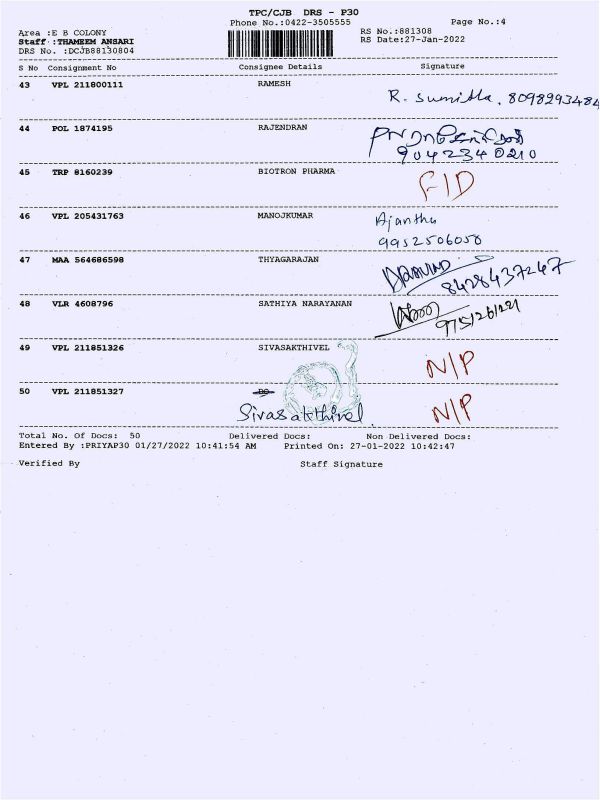 TPC/CJB DRS - P30
Phone No.:0422-3505555 Page No.:4
Area :E B COLONY RS No.:881308
Staff :THAMEEM ANSARI RS Date:27-Jan-2022
DRS No. :DCJB88130804
S No Consignment No Consignee Details Signature
43 VPL 211800111 RAMESH
R. Sumitha. 8098293484
44 POL 1874195 RAJENDRAN
9042340210
45 TRP 8160239 BIOTRON PHARMA F/D
46 VPL 205431763 MANOJKUMAR Ajantha
9952506050
47 MAA 564686598 THYAGARAJAN
8428437247
48 VLR 4608796 SATHIYA NARAYANAN
9751261221
49 VPL 211851326 SIVASAKTHIVEL N/P
50 VPL 211851327 DO N/P
Sivasakthivel
Total No. Of Docs: 50 Delivered Docs: Non Delivered Docs:
Entered By :PRIYAP30 01/27/2022 10:41:54 AM Printed On: 27-01-2022 10:42:47
Verified By Staff Signature